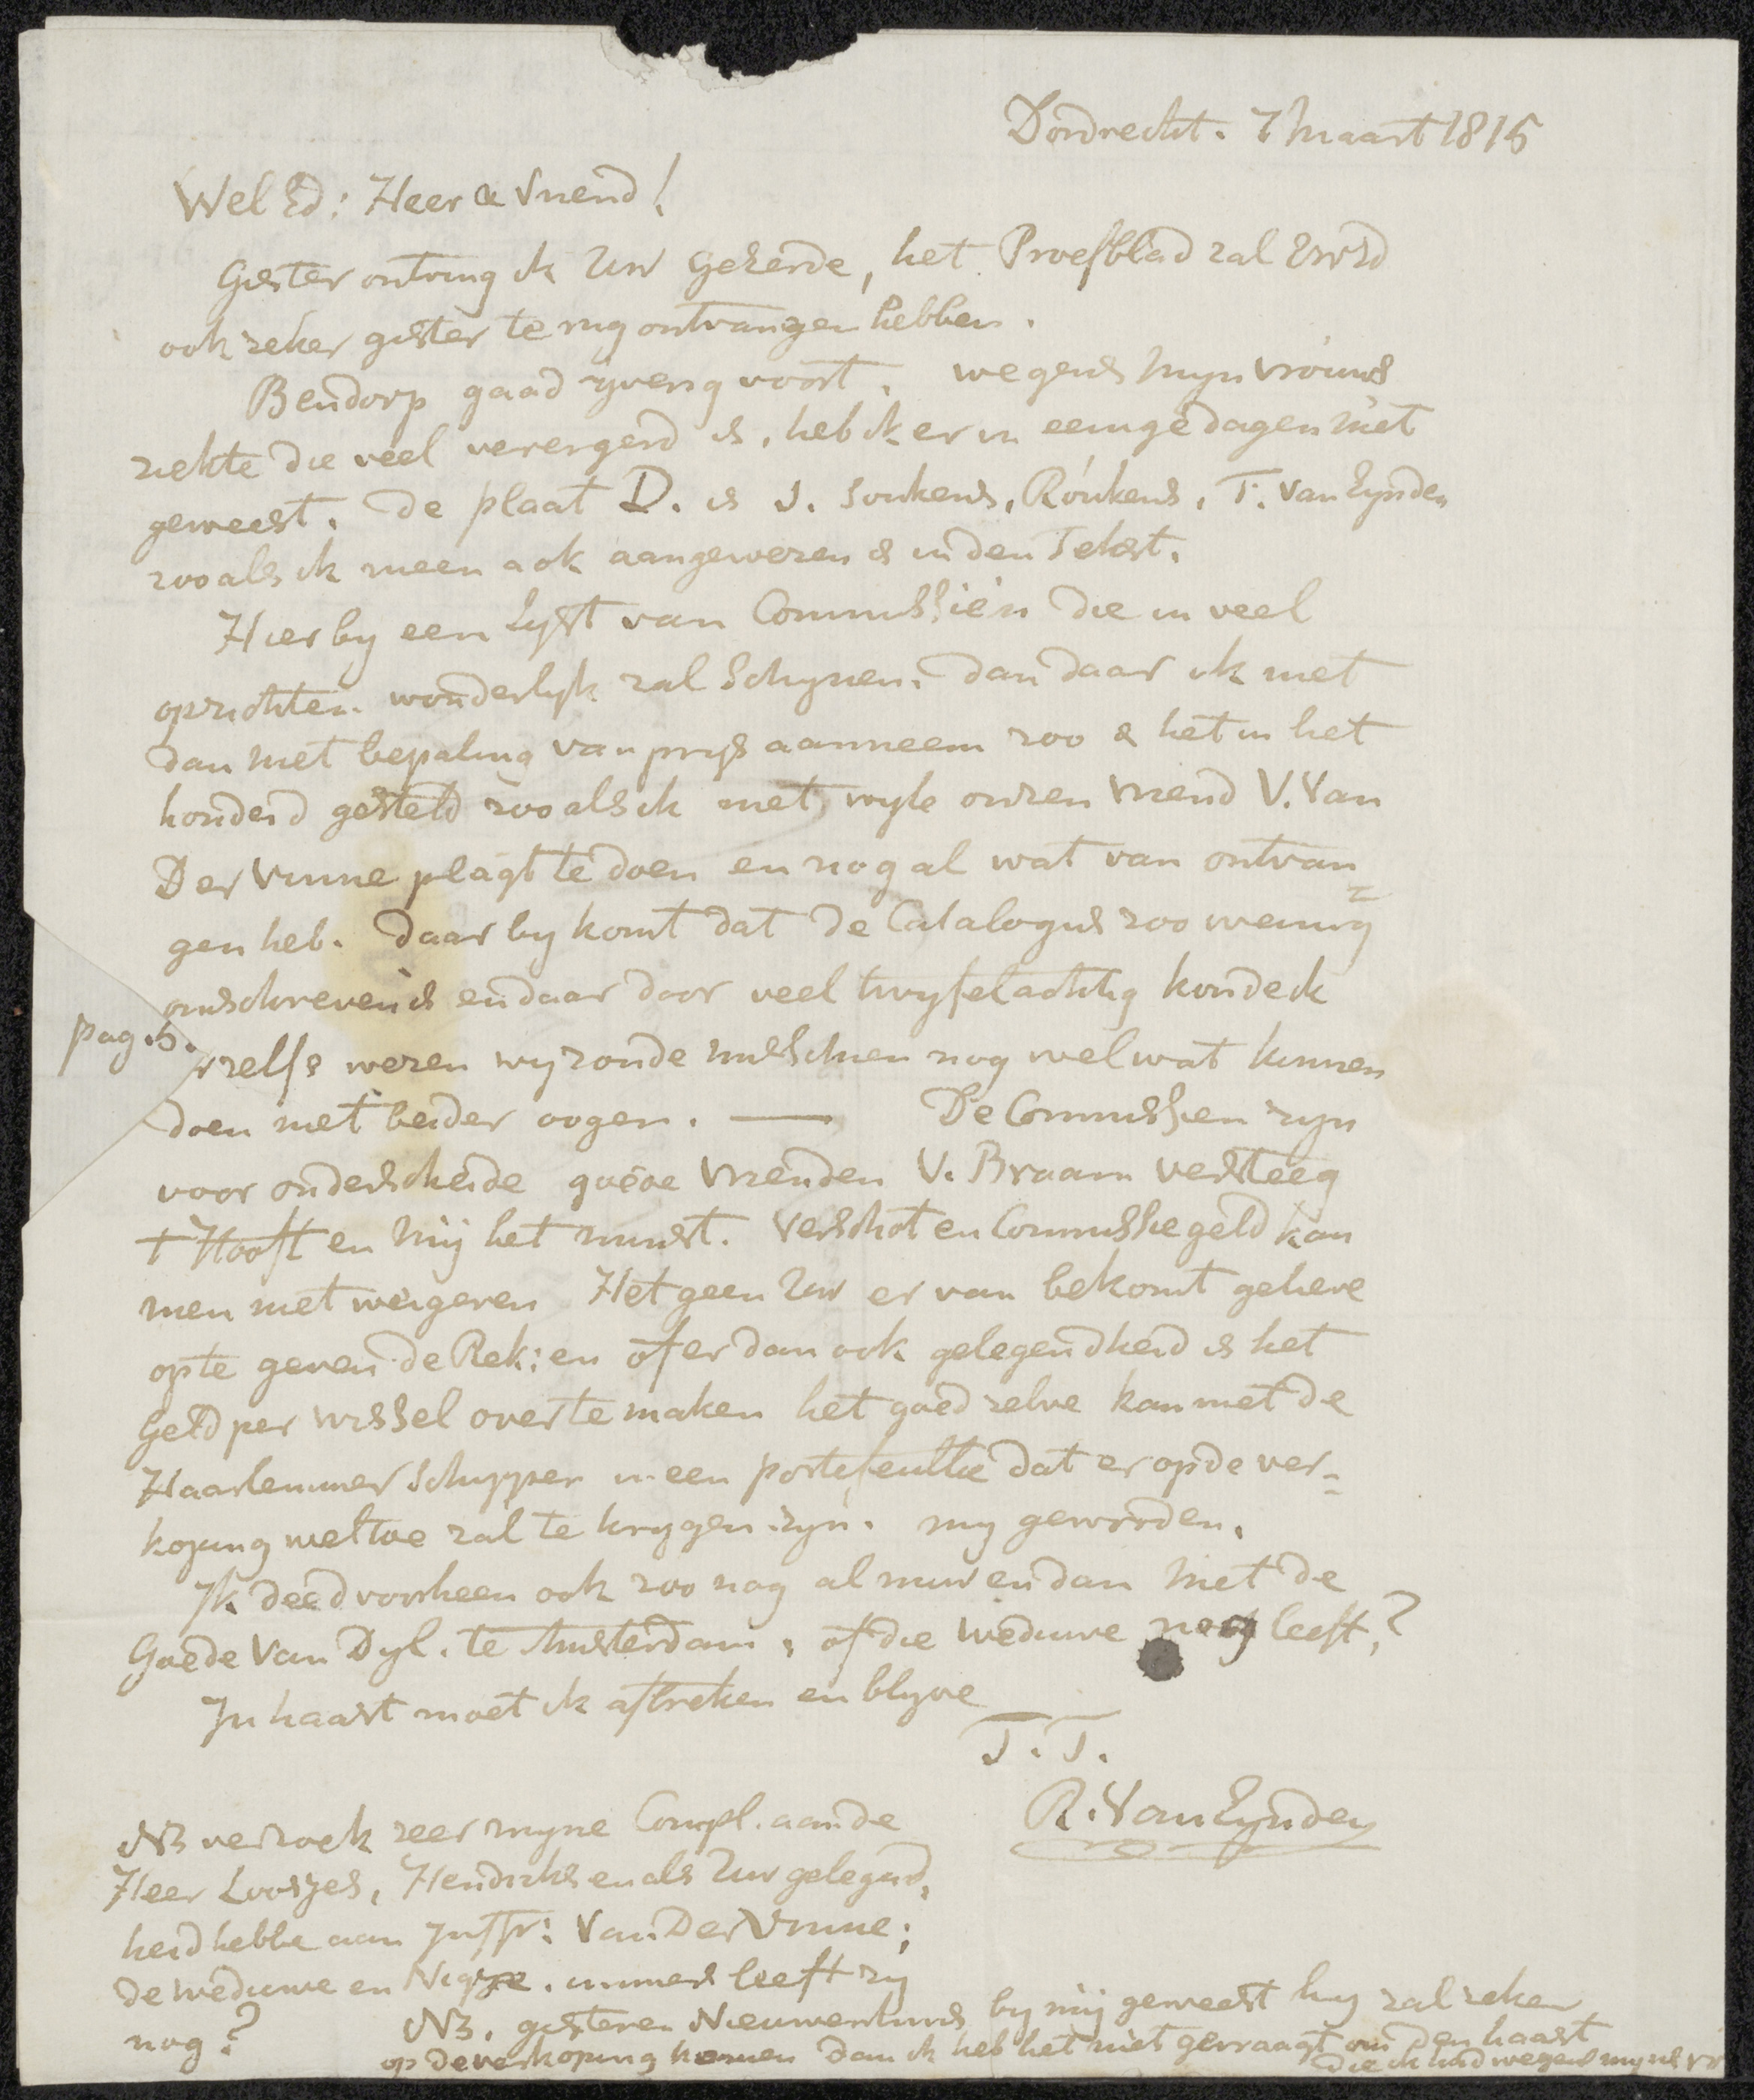 Dordrecht. 7 Maart 1815
Wel Ed: Heer & Vriend!
Gister ontving ik Uw geëerde, het Proefblad zal UwEd
ook zeker gister te rug ontvangen hebben.
Bendorp gaad yverig voort. wegens myn vrouws
ziekte die veel verergerd is, heb ik er in eenige dagen niet
geweest. De plaat D. is J. Sonkens, Ronkens, T. Van Eynden
zoo als ik meen ook aangewezen is in den Tekst.
Hier by een Lyst van Commissiën die in veel
opzichten wonderlyk zal schynen. dan daar ik niet
dan met bepaling van prys aanneem zoo is het in het
honderd gesteld zoo als ik met wyle onzen Vriend V. Van
Der Vinne plagt te doen en nog al wat van ontvan=
gen heb. Daar by komt dat de Catalogus zoo weinig
omschreven is en daar door veel twyfelachtig konde ik
pag. 5.
er zelfs wezen wy zonde misschien nog wel wat kunnen
doen met beider oogen. — De Commissien zyn
voor onderscheide goede Vrienden V. Braam Versteeg
t Hooft en Mij het minst. Verschot en Commissie geld kan
men niet weigeren Het geen Uw er van bekomt gelieve
op te geven de Rek: en of er dan ook gelegendheid is het
Geld per wissel over te maken het goed zelve kan met de
Haarlemmer Schipper in een portefeullie dat er op de ver=
koping wel toe zal te krygen zyn. my geworden.
Ik deed voorheen ook zoo nog al nuw en dan met de
Goede Van Dyl. te Amsterdam, of die weduwe nog leeft,?
In haast moet ik afbreken en blyve
T. T.
R. Van Eynden
NB verzoek zeer myne Compl. aan de
Heer Loosjes, Hendriks en als Uw gelegend,
heid hebbe aan Juffr: Van Der Vinne;
de weduwe en Nigje. immers leeft zy
nog?
NB. gisteren Nieuwenhuis by mij geweest hy zal zeker
op de verkoping komen dan ik heb het niet gevraagt om den haast
die ik had wegens myne vr